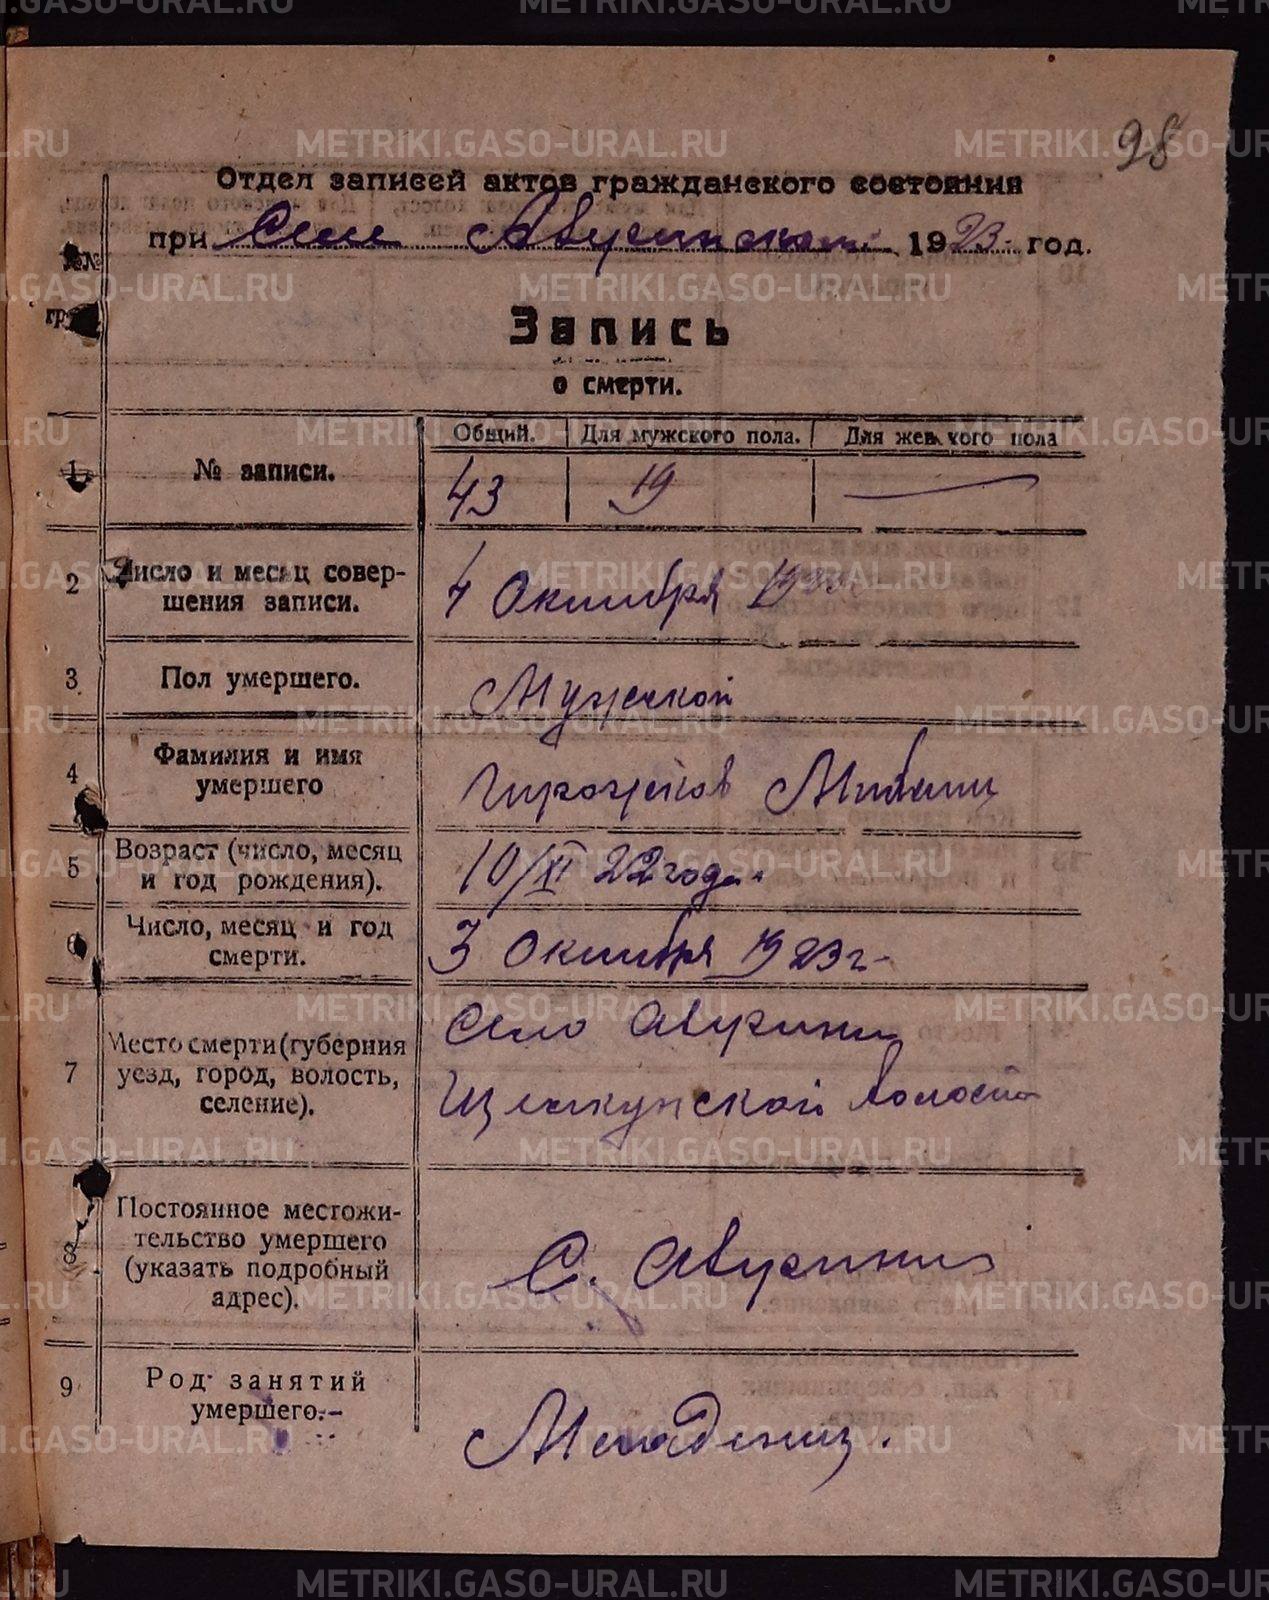 98
Отдел записей актов гражданского состояния
при Селе Авузинском 1923 год.
№№
гр
Запись
о смерти.
1 № записи. Общий. Для мужского пола. Для женского пола
43 19 —
2 Число и месяц совер-
шения записи. 4 Октября 1923
3 Пол умершего. Мужской
4 Фамилия и имя
умершего
5 Возраст (число, месяц
и год рождения). 10/XI 22 года.
6 Число, месяц и год
смерти. 3 Октября 1923 г
7 Место смерти (губерния
уезд, город, волость,
селение). Село
Щелкунской волости
8 Постоянное местожи-
тельство умершего
(указать подробный
адрес). С.
9 Род занятий
умершего.- Младенец.
METRIKI.GASO-URAL.RU